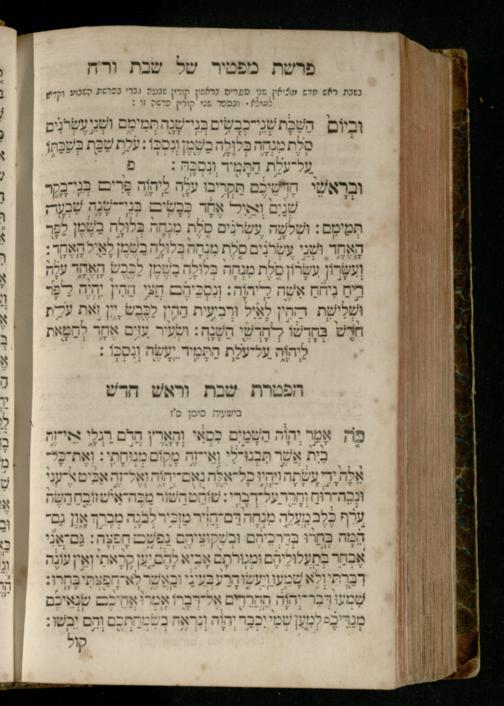 פרשת מפטיר של שבת ור״ח
בשבת ראש חדש מוציאין שני ספרים בראשון קורין שבעה גברי בפרשת השבוע וקדיש
לעולא · ובספר שני קורין פרשה זו :
וּבְיוֹם הַשַּׁבָּת שְׁנֵי־כְבָשִׂים בְּנֵי־שָׁנָה תְּמִימִם וּשְׁנֵי עֶשְׂרֹנִים
סֹלֶת מִנְחָה בְּלוּלָה בַשֶּׁמֶן וְנִסְכּוֹ : עֹלַת שַׁבַּת בְּשַׁבַּתּוֹ
עַל־עֹלַת הַתָּמִיד וְנִסְכָּהּ : פ
וּבְרָאשֵׁי חָדְשֵׁיכֶם תַּקְרִיבוּ עֹלָה לַיהוָֹה פָּרִים בְּנֵי־בָקָר
שְׁנַיִם וְאַיִל אֶחָד כְּבָשִׂים בְּנֵי־שָׁנָה שִׁבְעָה
תְּמִימִם : וּשְׁלֹשָׁה עֶשְׂרֹנִים סֹלֶת מִנְחָה בְּלוּלָה בַשֶּׁמֶן לַפָּר
הָאֶחָד וּשְׁנֵי עֶשְׂרֹנִים סֹלֶת מִנְחָה בְּלוּלָה בַשֶּׁמֶן לָאַיִל הָאֶחָד :
וְעִשָּׂרֹן עִשָּׂרוֹן סֹלֶת מִנְחָה בְּלוּלָה בַשֶּׁמֶן לַכֶּבֶשׂ הָאֶחָד עֹלָה
רֵיחַ נִיחֹחַ אִשֶּׁה לַיהוָֹה : וְנִסְכֵּיהֶם חֲצִי הַהִין יִהְיֶה לַפָּר
וּשְׁלִישִׁת הַהִין לָאַיִל וּרְבִיעִת הַהִין לַכֶּבֶשׂ יָיִן זֹאת עֹלַת
חֹדֶשׁ בְּחָדְשׁוֹ לְחָדְשֵׁי הַשָּׁנָה : וּשְׂעִיר עִזִּים אֶחָד לְחַטָּאת
לַיהוָֹה עַל־עֹלַת הַתָּמִיד יֵעָשֶׂה וְנִסְכּוֹ :
הפטרת שבת וראש חדש
בישעיה סימן ס״ו
כֹּה אָמַר יְהוָֹה הַשָּׁמַיִם כִּסְאִי וְהָאָרֶץ הֲדֹם רַגְלָי אֵי־זֶה
בַיִת אֲשֶׁר תִּבְנוּ־לִי וְאֵי־זֶה מָקוֹם מְנוּחָתִי : וְאֶת־כָּל־
אֵלֶּה יָדִי עָשָׂתָה וַיִּהְיוּ כָל־אֵלֶּה נְאֻם־יְהוָֹה וְאֶל־זֶה אַבִּיט אֶל־עָנִי
וּנְכֵה־רוּחַ וְחָרֵד עַל־דְּבָרִי : שׁוֹחֵט הַשּׁוֹר מַכֵּה־אִישׁ זוֹבֵחַ הַשֶּׂה
עֹרֵף כֶּלֶב מַעֲלֵה מִנְחָה דַּם־חֲזִיר מַזְכִּיר לְבֹנָה מְבָרֵךְ אָוֶן גַּם־
הֵמָּה בָּחֲרוּ בְּדַרְכֵיהֶם וּבְשִׁקּוּצֵיהֶם נַפְשָׁם חָפֵצָה : גַּם־אֲנִי
אֶבְחַר בְּתַעֲלוּלֵיהֶם וּמְגוּרֹתָם אָבִיא לָהֶם יַעַן קָרָאתִי וְאֵין עוֹנֶה
דִּבַּרְתִּי וְלֹא שָׁמֵעוּ וַיַּעֲשׂוּ הָרַע בְּעֵינַי וּבַאֲשֶׁר לֹא־חָפַצְתִּי בָּחָרוּ :
שִׁמְעוּ דְּבַר־יְהוָֹה הַחֲרֵדִים אֶל־דְּבָרוֹ אָמְרוּ אֲחֵיכֶם שֹׂנְאֵיכֶם
מְנַדֵּיכֶם לְמַעַן שְׁמִי יִכְבַּד יְהוָֹה וְנִרְאֶה בְשִׂמְחַתְכֶם וְהֵם יֵבֹשׁוּ :
קול